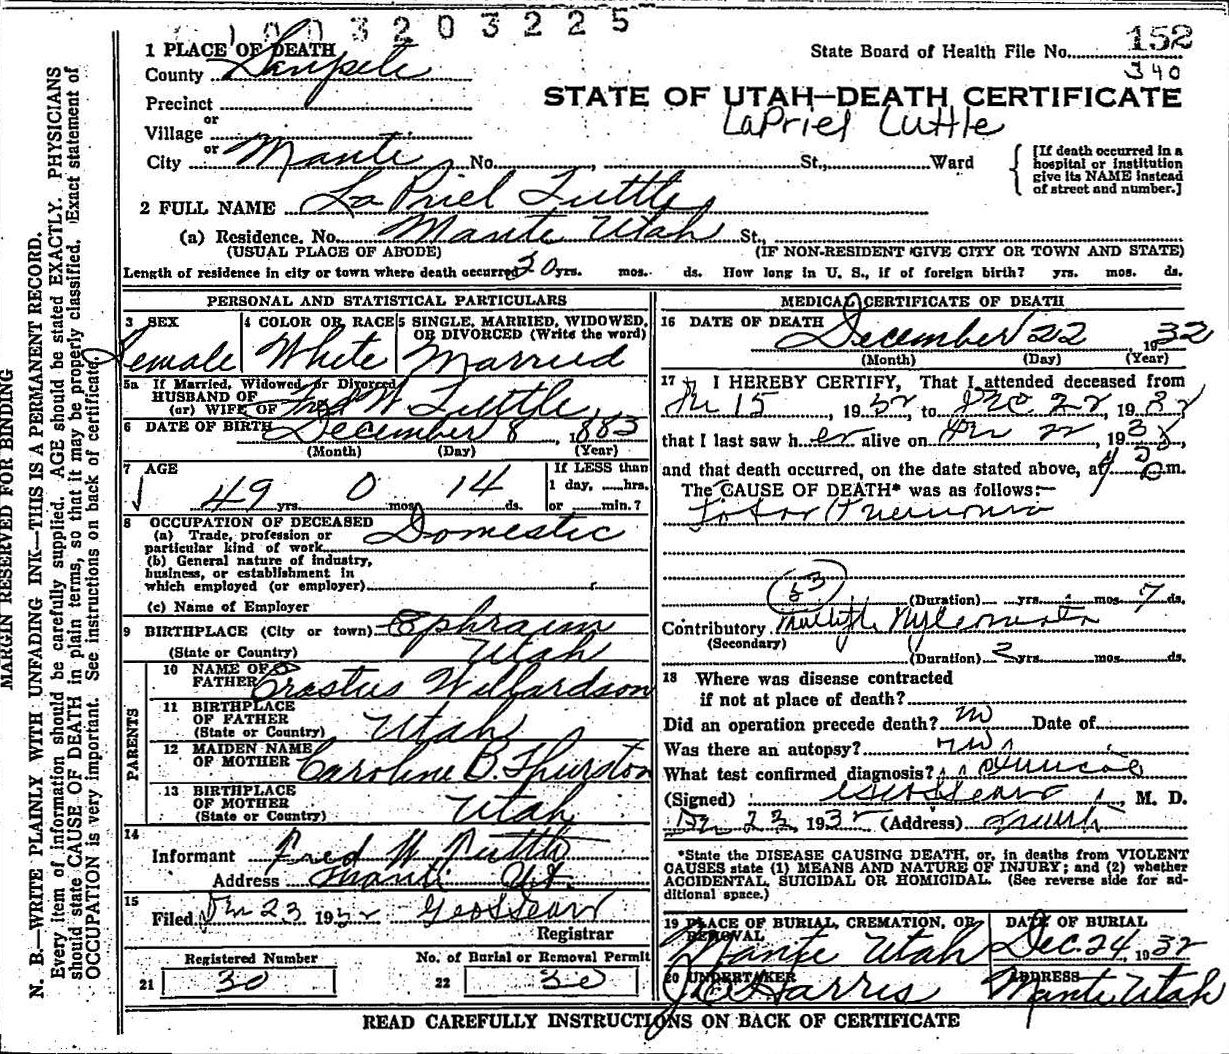 1003203225
1 PLACE OF DEATH
State Board of Health File No. 152
County Sanpete
340
STATE OF UTAH—DEATH CERTIFICATE
Precinct
or
LaPriel Tuttle
Village
or
City Manti No. St., Ward
[If death occurred in a hospital or institution give its NAME instead of street and number.]
2 FULL NAME La Priel Tuttle
(a) Residence. No. Manti Utah St.,
(USUAL PLACE OF ABODE) (IF NON-RESIDENT GIVE CITY OR TOWN AND STATE)
Length of residence in city or town where death occurred 20 yrs. mos. ds. How long in U. S., if of foreign birth? yrs. mos. ds.
PERSONAL AND STATISTICAL PARTICULARS
3 SEX 4 COLOR OR RACE 5 SINGLE, MARRIED, WIDOWED, OR DIVORCED (Write the word)
Female White Married
5a If Married, Widowed or Divorced
HUSBAND OF
(or) WIFE OF Fred W Tuttle
6 DATE OF BIRTH December 8, 1883
(Month) (Day) (Year)
7 AGE
If LESS than
1 day, hrs.
49 yrs. 0 mos. 14 ds. or min.?
8 OCCUPATION OF DECEASED
(a) Trade, profession or
particular kind of work Domestic
(b) General nature of industry,
business, or establishment in
which employed (or employer)
(c) Name of Employer
9 BIRTHPLACE (City or town) Ephraim
(State or Country) Utah
PARENTS
10 NAME OF
FATHER Erastus Willardson
11 BIRTHPLACE
OF FATHER
(State or Country) Utah
12 MAIDEN NAME
OF MOTHER Caroline B. Thurston
13 BIRTHPLACE
OF MOTHER
(State or Country) Utah
14
Informant Fred W Tuttle
Address Manti Ut.
15
Filed Dec 23 1932 Geo L Sears
Registrar
Registered Number No. of Burial or Removal Permit
21 30 22 30
MEDICAL CERTIFICATE OF DEATH
16 DATE OF DEATH
December 22, 1932
(Month) (Day) (Year)
17 I HEREBY CERTIFY, That I attended deceased from
Dec 15, 1932, to Dec 22, 1932
that I last saw her alive on Dec 22, 193
and that death occurred, on the date stated above, at m.
The CAUSE OF DEATH* was as follows:—
Lobar Pneumonia
63
(Duration) yrs. mos. 7 ds.
Contributory Multiple
(Secondary)
(Duration) 2 yrs. mos. ds.
18 Where was disease contracted
if not at place of death?
Did an operation precede death? no Date of
Was there an autopsy? no
What test confirmed diagnosis? Clinical
(Signed) Geo L Sears, M. D.
Dec 23, 1932 (Address) Manti
*State the DISEASE CAUSING DEATH, or, in deaths from VIOLENT
CAUSES state (1) MEANS AND NATURE OF INJURY; and (2) whether
ACCIDENTAL, SUICIDAL OR HOMICIDAL. (See reverse side for ad-
ditional space.)
19 PLACE OF BURIAL, CREMATION, OR REMOVAL DATE OF BURIAL
Manti Utah Dec. 24, 1932
20 UNDERTAKER ADDRESS
Harris Manti Utah
READ CAREFULLY INSTRUCTIONS ON BACK OF CERTIFICATE
MARGIN RESERVED FOR BINDING
N. B.—WRITE PLAINLY WITH UNFADING INK—THIS IS A PERMANENT RECORD.
Every item of information should be carefully supplied. AGE should be stated EXACTLY. PHYSICIANS
should state CAUSE OF DEATH in plain terms, so that it may be properly classified. Exact statement of
OCCUPATION is very important. See instructions on back of certificate.